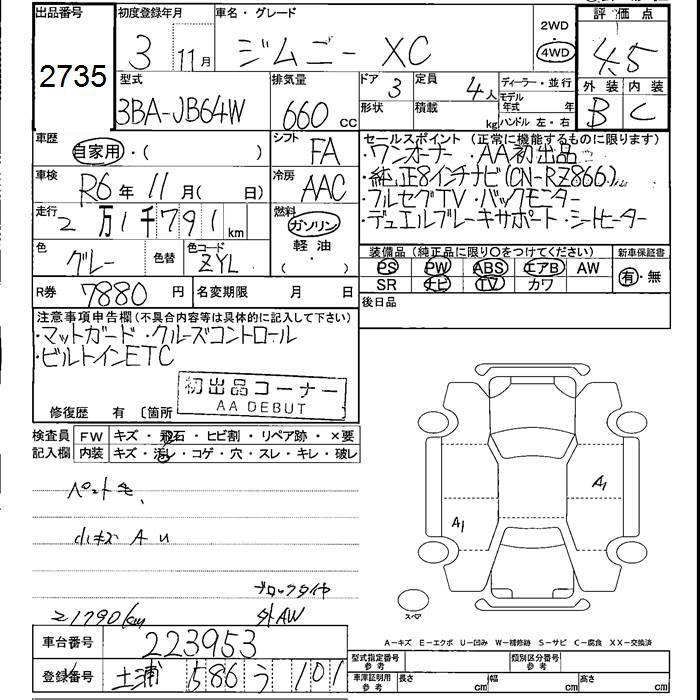 出品番号
2735
初度登録年月
3 11月
車名・グレード
ジムニー XC
2WD
・
4WD
評価点
4.5
外装 内装
B C
型式
3BA-JB64W
排気量
660 cc
ドア 3
形状
定員 4人
積載 kg
ディーラー・並行
モデル年式 年
ハンドル 左・右
車歴
自家用・( )
シフト
FA
車検
R6年 11月( 日)
冷房
AAC
走行
2万1千791km
燃料
ガソリン
軽油
・
( )
色
グレー
色替
色コード
ZYL
R券 7880円
名変期限 月 日
セールスポイント (正常に機能するものに限ります)
・ワンオーナー ・AA初出品
・純正8インチナビ(CN-RZ866)
・フルセグTV ・バックモニター
・デュエルブレーキサポート・シートヒーター
装備品 (純正品に限り○をつけてください)
PS PW ABS エアB AW
SR ナビ TV カワ
新車保証書
有・無
後日品
注意事項申告欄(不具合内容等は具体的に記入して下さい)
・マットガード・クルーズコントロール
・ビルトインETC
初出品コーナー
AA DEBUT
修復歴 有 〔箇所
検査員 FW キズ・飛石・ヒビ割・リペア跡・×要
記入欄 内装 キズ・汚レ・コゲ・穴・スレ・キレ・破レ
ペット毛、
小キズ A U
ブロックタイヤ
21790km
外AW
A1
A1
スペア
A-キズ E-エクボ U-凹み W-補修跡 S-サビ C-腐食 XX-交換済
車台番号 223953
登録番号 土浦 586 う 101
型式指定番号
参考
類別区分番号
参考
車庫証明用
参考
長さ cm
幅 cm
高さ cm